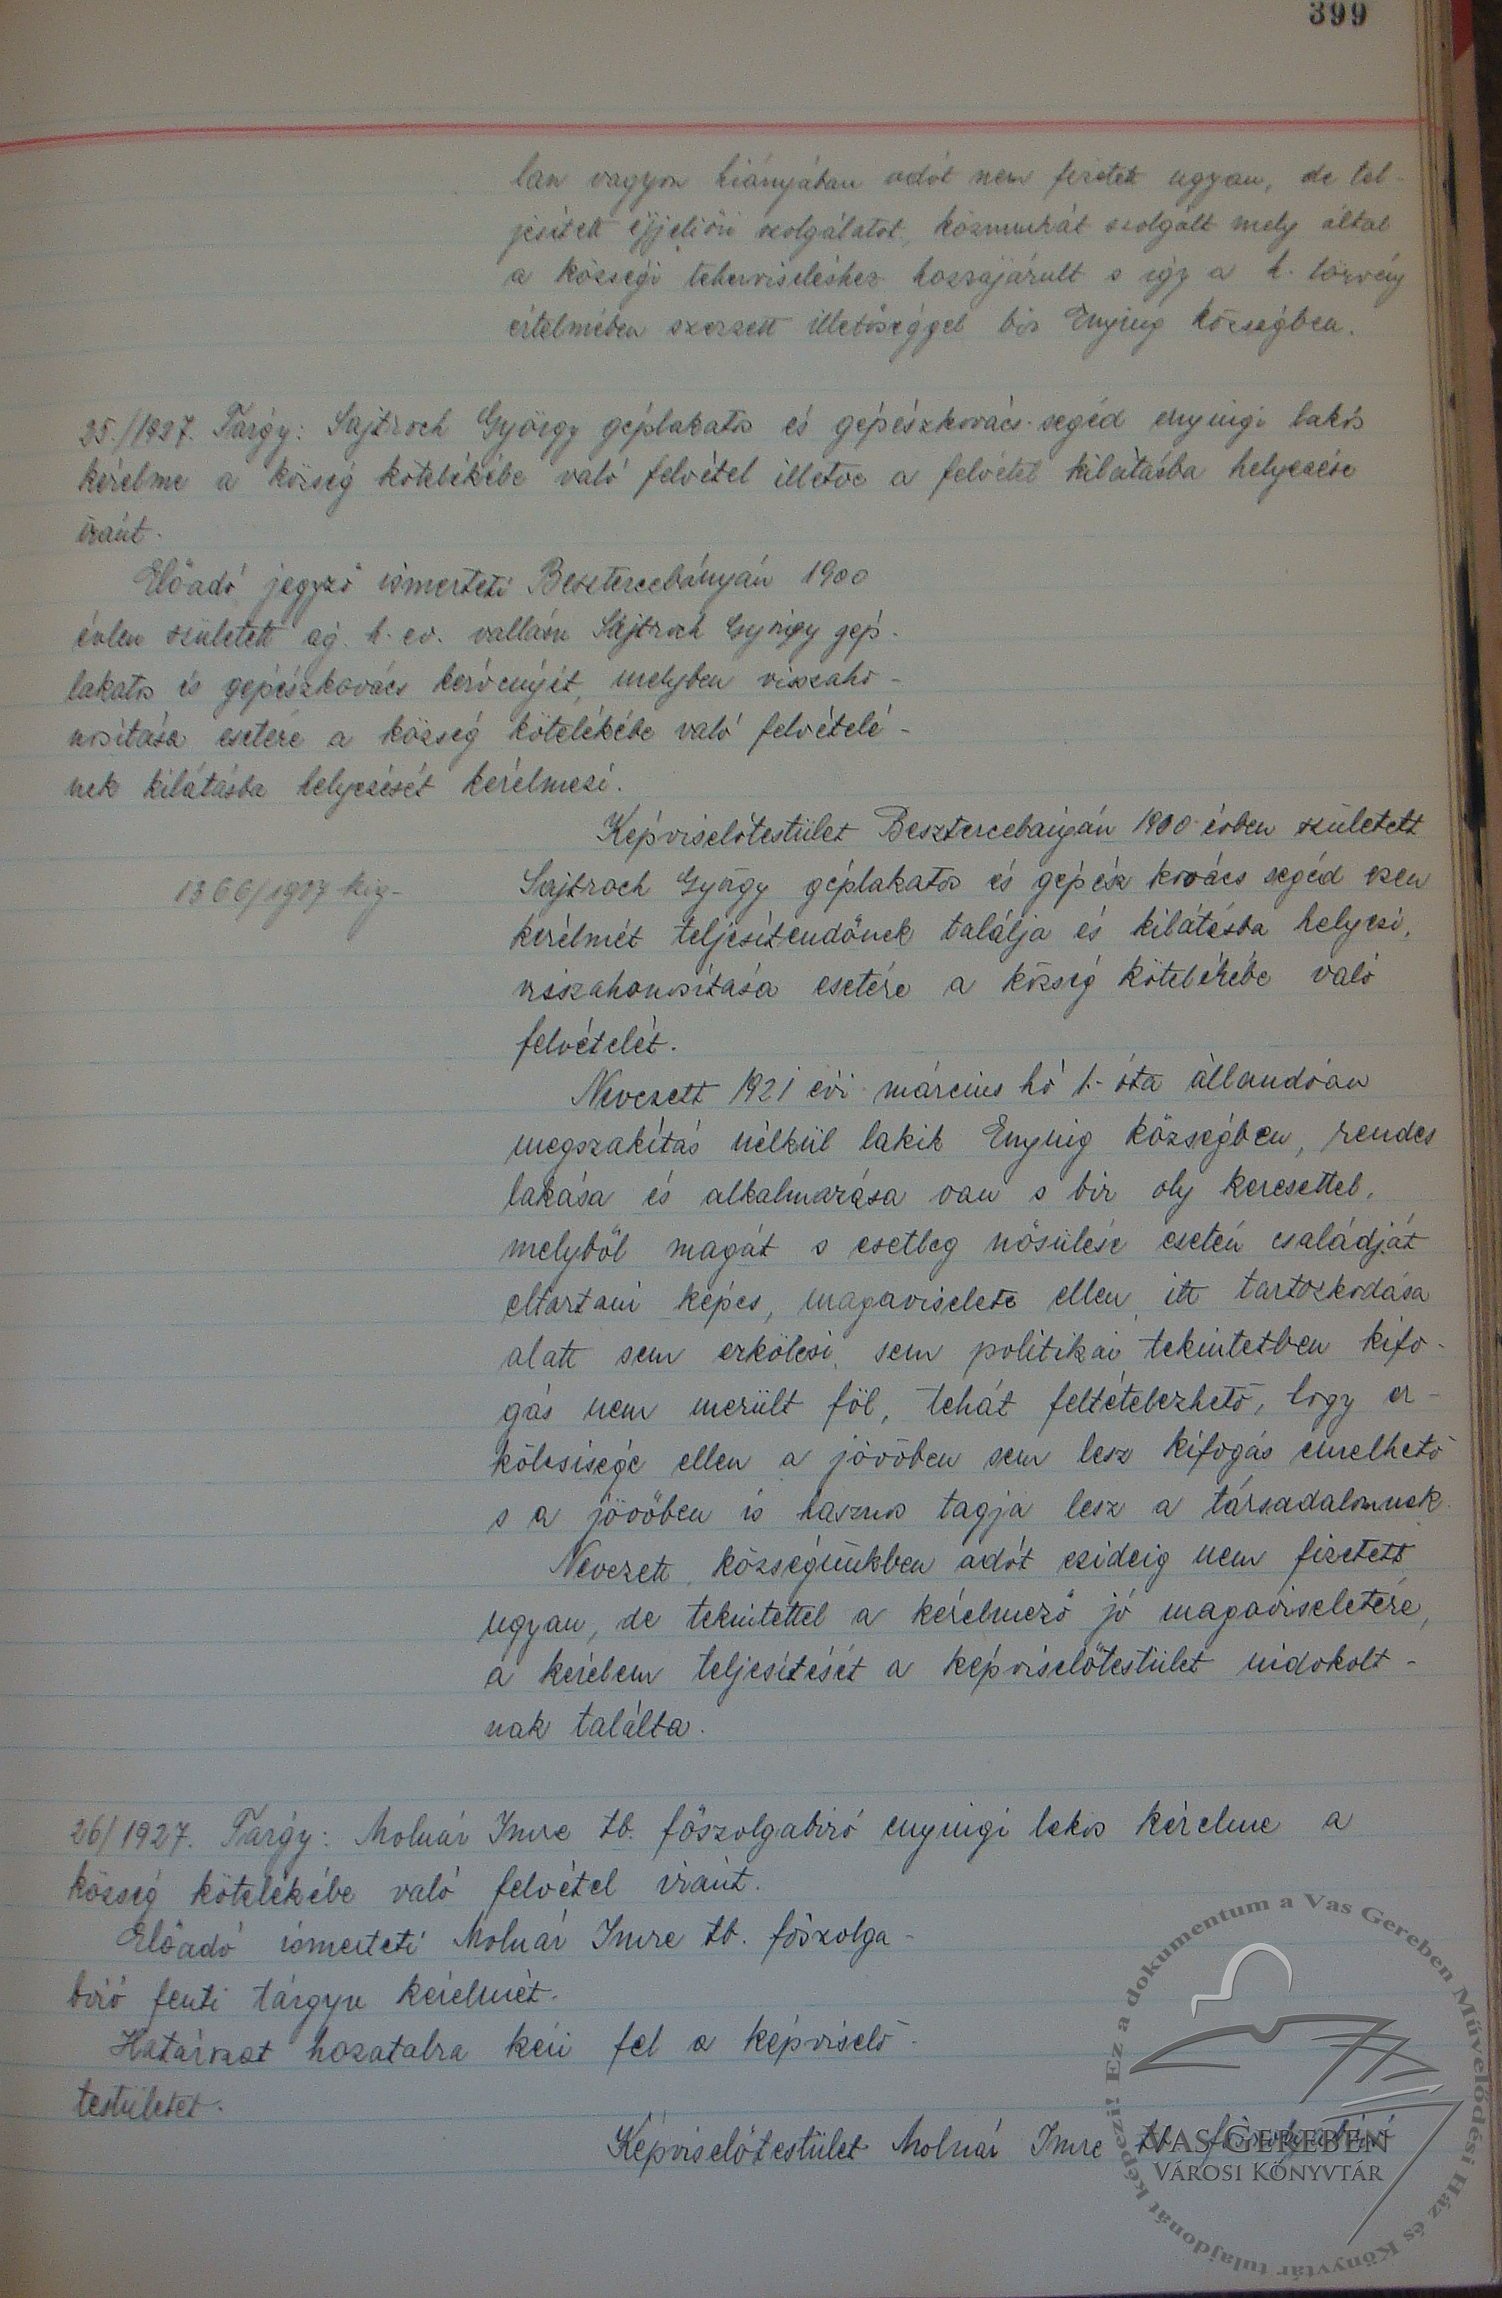 399
lan vagyon hiányában adót nem fizetett ugyan, de tel-
jesített éjjeliőri szolgálatot, közmunkát szolgált mely által
a községi teherviseléshez hozzájárult s így a h. törvény
értelmében szerzett illetőséggel bir Enying községben.
25./1927. Tárgy: Sajtroch György géplakatos és gépészkovács segéd enyingi lakos
kérelme a község kötelékébe való felvétel illetve a felvétel kilátásba helyezése
iránt.
Előadó jegyző ismerteti Besztercebányán 1900
évben született ág. h. ev. vallásu Sajtroch György gép-
lakatos és gépészkovács kérvényét, melyben visszaho-
nosítása esetére a község kötelékébe való felvételé-
nek kilátásba helyezését kérelmezi.
Képviselőtestület Besztercebányán 1900 évben született
1366/1927 kig-
Sajtroch György géplakatos és gépész kovács segéd ezen
kérelmét teljesítendőnek találja és kilátásba helyezi,
visszahonosítása esetére a község kötelékébe való
felvételét.
Nevezett 1921 évi március hó 1.- óta állandóan
megszakítás nélkül lakik Enying községben, rendes
lakása és alkalmazása van s bir oly keresettel,
melyből magát s esetleg nősülése esetén családját
eltartani képes, magaviselete ellen itt tartozkodása
alatt sem erkölcsi, sem politikai tekintetben kifo-
gás nem merült föl, tehát feltételezhető, hogy er-
kölcsisége ellen a jövőben sem lesz kifogás emelhető
s a jövőben is hasznos tagja lesz a társadalomnak.
Nevezett községünkben adót ezideig nem fizetett
ugyan, de tekintettel a kérelmező jó magaviseletére,
a kérelem teljesítését a képviselőtestület indokolt-
nak találta.
26/1927. Tárgy: Molnár Imre tb. főszolgabiró enyingi lakos kérelme a
község kötelékébe való felvétel iránt.
Előadó ismerteti Molnár Imre tb. főszolga-
biró fenti tárgyu kérelmét.
Határozat hozatalra kéri fel a képviselő-
testületet.
Képviselőtestület Molnár Imre tb. főszolgabiró
Ez a dokumentum a Vas Gereben Művelődési Ház és Könyvtár tulajdonát képezi!
VAS GEREBEN
VÁROSI KÖNYVTÁR